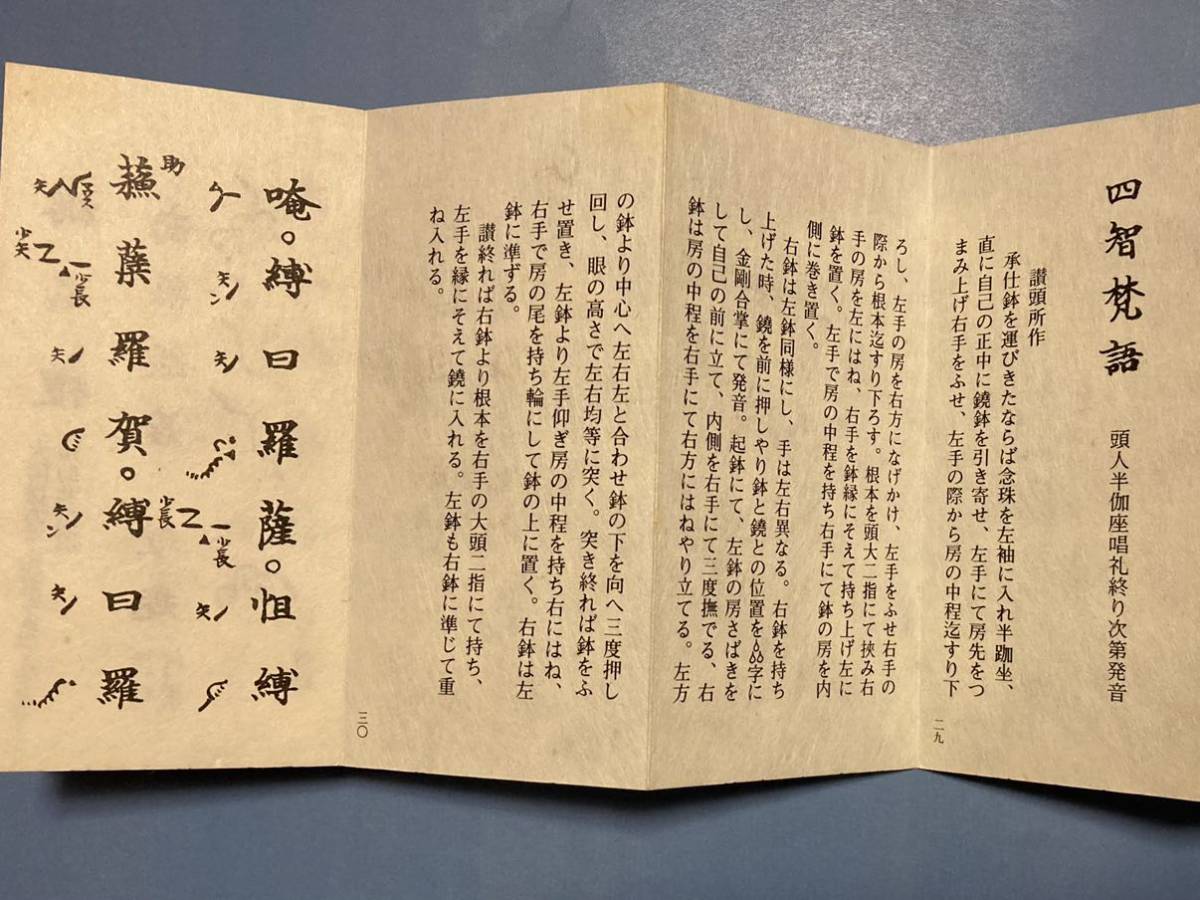 四智梵語　頭人半伽座唱礼終り次第発音
讃頭所作
承仕鉢を運びきたならば念珠を左袖に入れ半跏坐、
直に自己の正中に鐃鉢を引き寄せ、左手にて房先をつ
まみ上げ右手をふせ、左手の際から房の中程迄すり下
二九
ろし、左手の房を右方になげかけ、左手をふせ右手の
際から根本迄すり下ろす。根本を頭大二指にて挟み右
手の房を左にはね、右手を鉢縁にそえて持ち上げ左に
鉢を置く。左手で房の中程を持ち右手にて鉢の房を内
側に巻き置く。
右鉢は左鉢同様にし、手は左右異なる。右鉢を持ち
上げた時、鐃を前に押しやり鉢と鐃との位置を品字に
し、金剛合掌にて発音。起鉢にて、左鉢の房さばきを
して自己の前に立て、内側を右手にて三度撫でる、右
鉢は房の中程を右手にて右方にはねやり立てる。左方
の鉢より中心へ左右左と合わせ鉢の下を向へ三度押し
回し、眼の高さで左右均等に突く。突き終れば鉢をふ
せ置き、左鉢より左手仰ぎ房の中程を持ち右にはね、
右手で房の尾を持ち輪にして鉢の上に置く。右鉢は左
鉢に準ずる。
讃終れば右鉢より根本を右手の大頭二指にて持ち、
左手を縁にそえて鐃に入れる。左鉢も右鉢に準じて重
ね入れる。
三〇
唵。縛日羅薩。怛縛
助
蘓蘖羅賀。縛日羅